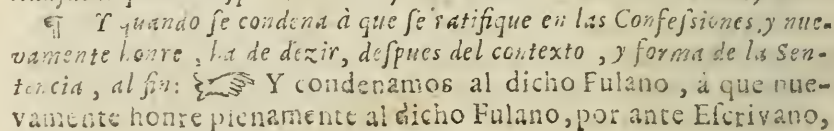 ¶ Y quando ſe condena à que ſe ratifique en las Confeſsiones, y nue-
vamente honre, ha de dezir, deſpues del contexto, y forma de la Sen-
tencia, al fin: ☞ Y condenamos al dicho Fulano, à que nue-
vamente honre plenamente al dicho Fulano, por ante Eſcrivano,